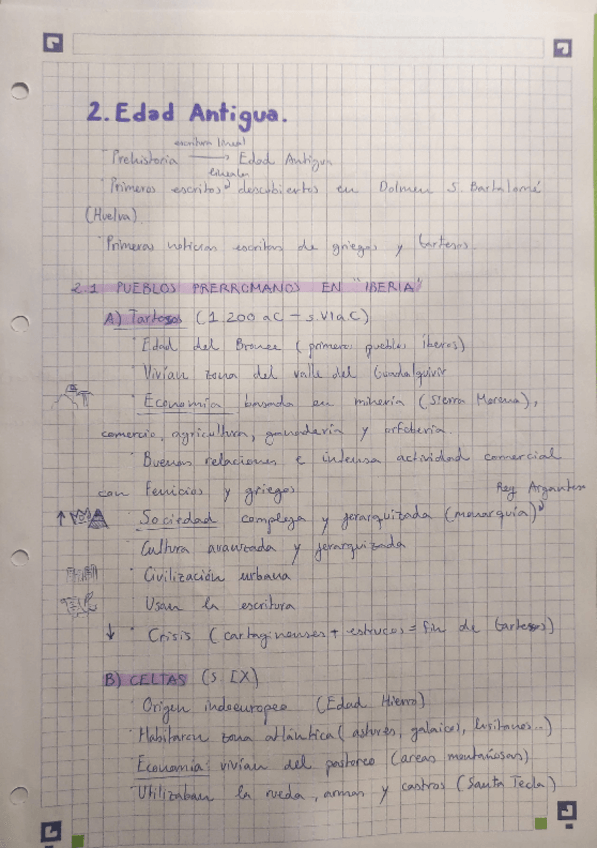 2. Edad Antigua.
escritura lineal
· Prehistoria → Edad Antigua
lineales
· Primeros escritos descubiertos en Dolmen S. Bartolomé
(Huelva).
· Primeras noticias escritas de griegos y tartesos.
2.1 PUEBLOS PRERROMANOS EN "IBERIA"
A) Tartesos (1.200 aC - s.VI a.C)
· Edad del Bronce (primeros pueblos íberos)
· Vivían zona del valle del Guadalquivir
· Economía basada en minería (Sierra Morena),
comercio, agricultura, ganadería y orfebrería.
· Buenas relaciones e intensa actividad comercial
con fenicios y griegos
Rey
↑ · Sociedad compleja y jerarquizada (monarquía)
· Cultura avanzada y jerarquizada
· Civilización urbana
· Usan la escritura
↓ · Crisis (cartaginenses + estruscos = fin de tartesos)
B) CELTAS (s IX)
· Origen indoeuropeo (Edad Hierro)
· Habitaron zona atlántica (astures, galaicos, lusitanos...)
· Economía: vivían del pastoreo (areas montañosas)
· Utilizaban la rueda, armas y castros (Santa Tecla)